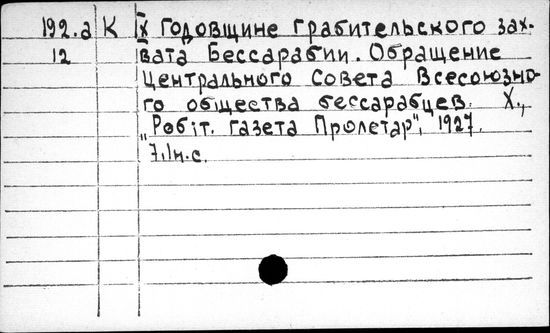 192.а К IX Годовщине грабительского зах-
12 вата Бессарабии. Обращение
Центрального Совета Всесоюзно-
го общества бессарабцев. Х.,
"Робіт. газета Пролетар", 1927.
7,1н.с.